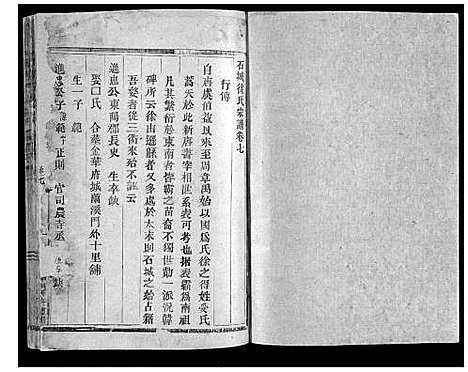 石城徐氏宗譜卷七
行傳
自唐虞伯益以來至周章禹始以國為氏徐之得姓受氏
蒿矣此新唐書宰相世系表可考也據表霸為南祖
凡其繁衍於東南者皆霸之苗裔不獨世勣一派況韓
碑所云徐由遜縣者又多處於太末則石城之始占籍
吾婺者從三衢來殆不誣云
進忠公東陽郡長史 生卒缺
娶口氏 合葬金華府城蘭溪門外十里舖
生一子 範
進忠公子 範 正則 官司農寺丞